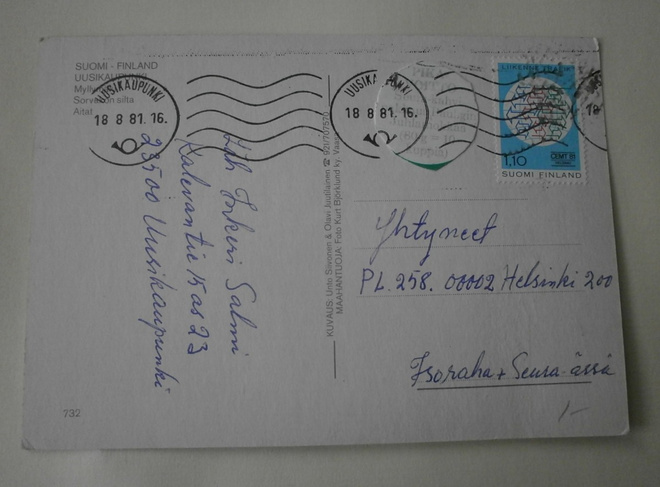 SUOMI - FINLAND
UUSIKAUPUNKI
Sorvakon silta
Aitat
UUSIKAUPUNKI
18 8 81.16.
UUSIKAUPUNKI
18 8 81.16.
18
LIIKENNE
1,10
CEMT
SUOMI FINLAND
Läh Inkeri Salmi
Kalevantie 15 as 23
23500 Uusikaupunki
KUVAUS: Unto Siivonen & Olavi Juutilainen ☎ 921/707570
MAAHANTUOJA: Foto Kurt Björklund ky. Vaasa
Yhtyneet
PL. 258. 00002 Helsinki 200
Isoraha + Seura-ässä
1/-
232